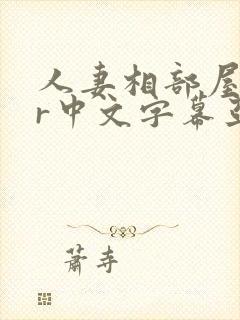 人妻相部屋
r中文字幕
萧寺